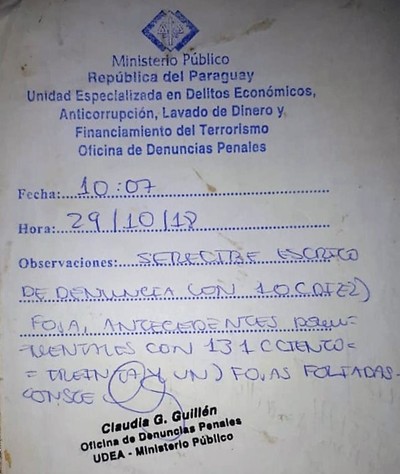 Ministerio Público
República del Paraguay
Unidad Especializada en Delitos Económicos,
Anticorrupción, Lavado de Dinero y
Financiamiento del Terrorismo
Oficina de Denuncias Penales
Fecha: 10:07
Hora: 29/10/18
Observaciones: SE RECIBE ESCRITO
DE DENUNCIA CON 10 (DIEZ)
FOJA, ANTECEDENTES DOCU-
-MENTALES CON 131 (CIENTO=
=TREINTA Y UN) FOJAS FOLIADAS.
CONSTE
Claudia G. Guillén
Oficina de Denuncias Penales
UDEA - Ministerio Público